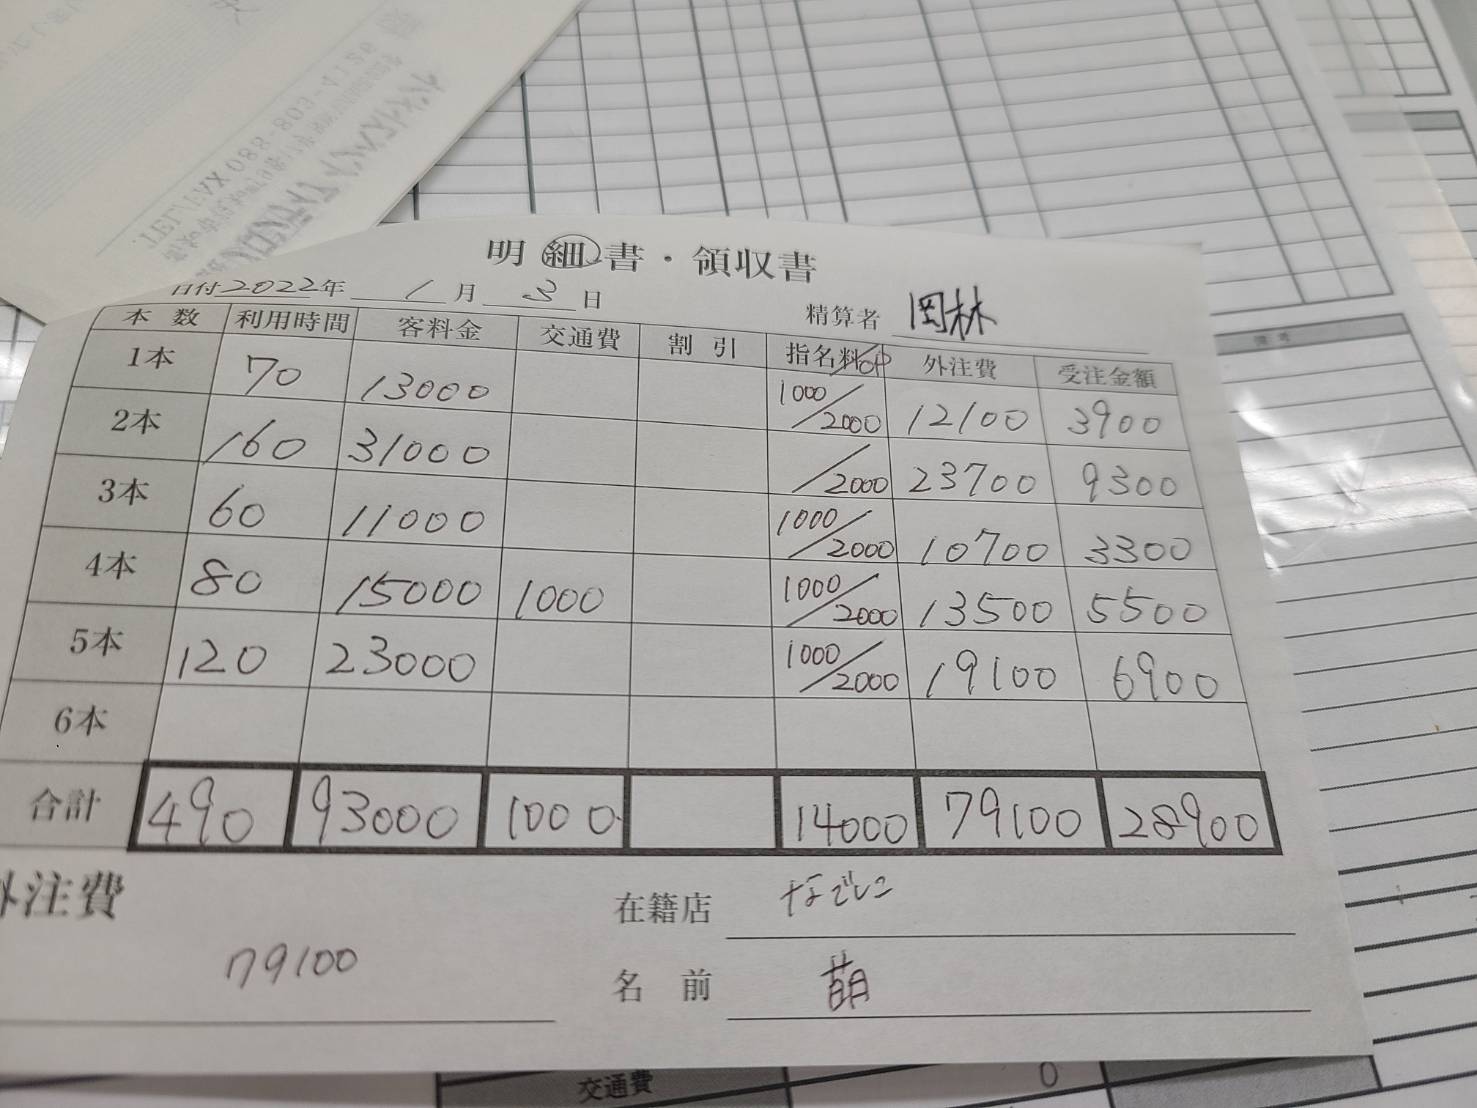 TEL/FAX 088-803-4126
明細書・領収書
日付 2022年 1月 3日
精算者 岡林
本数 利用時間 客料金 交通費 割引 指名料/OP 外注費 受注金額
1本 70 13000 1000/2000 12100 3900
2本 160 31000 /2000 23700 9300
3本 60 11000 1000/2000 10700 3300
4本 80 15000 1000 1000/2000 13500 5500
5本 120 23000 1000/2000 19100 6900
6本
合計 490 93000 1000 14000 79100 28900
外注費
79100
在籍店 なでしこ
名前 萌
交通費 0
備考